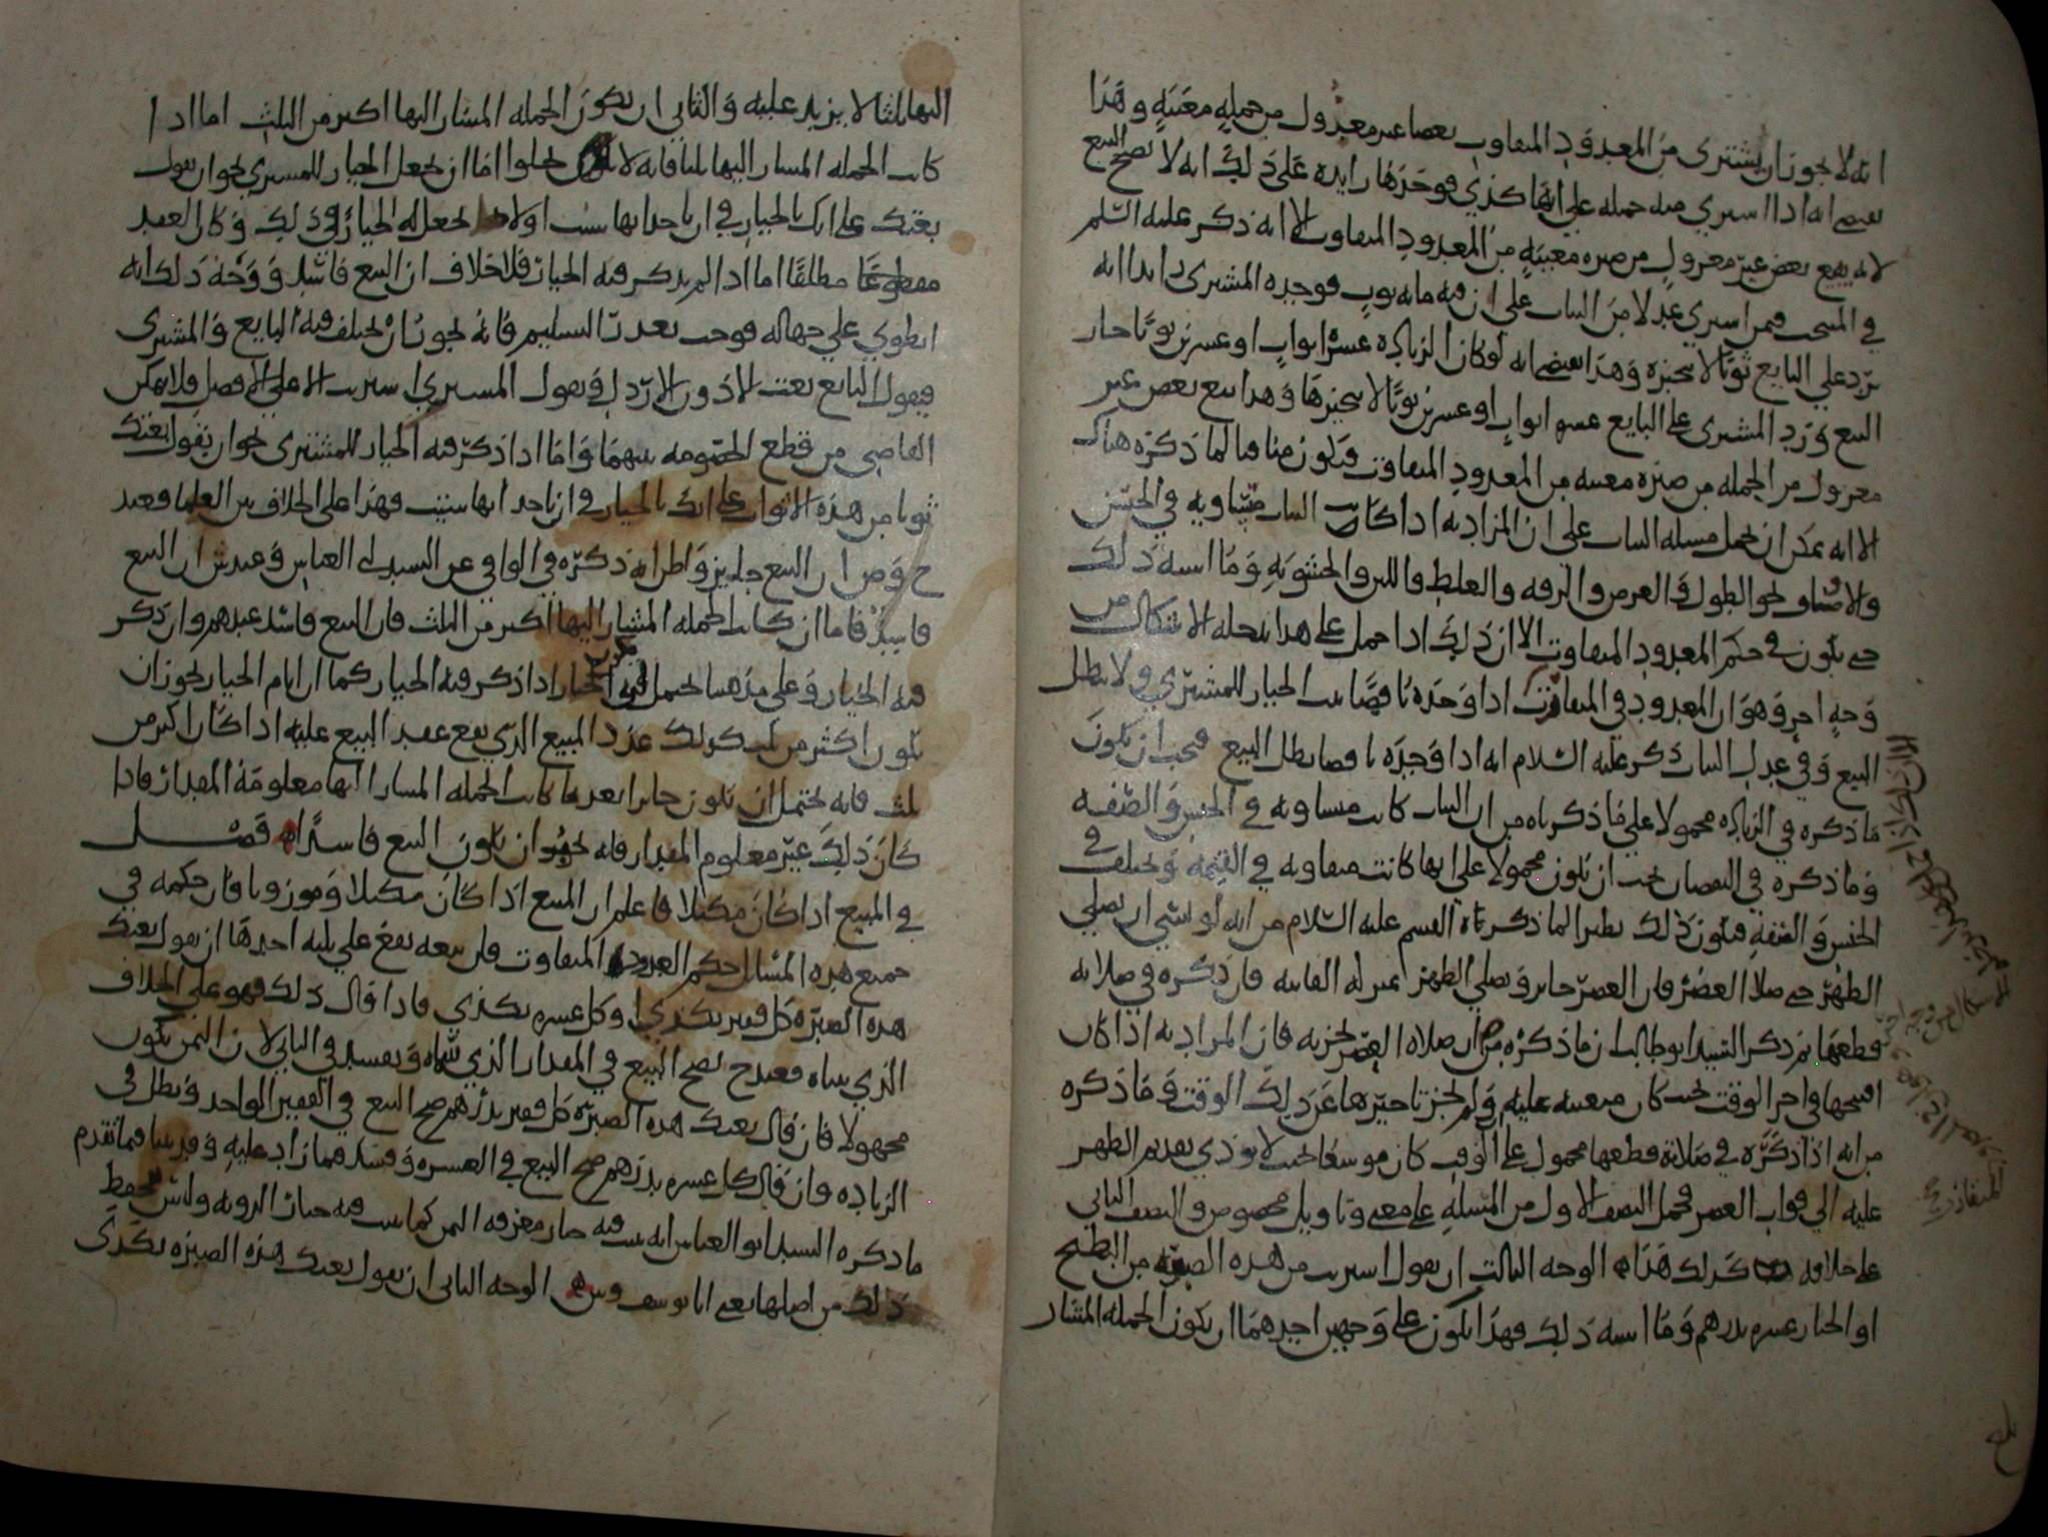 انه لا يجوز ان يشترى من المعدود المتفاوت بعضا غير معزول من جملةٍ معينةٍ وهذا
يقتضي انه اذا اشترى منه جملة على انها كذى فوجدها زايدة على ذلك انه لا يصح البيع
لانه يبيع بعض غير معزولٍ من صبره معينةٍ من المعدود المتفاوت الا انه ذكر عليه السلم
في المنتخب فيمن اشترى عدلا من الثياب على ان فيه مايه ثوبٍ فوجده المشترى زايدا انه
يرد على البايع ثوبًا لا يتخيره وهذا يقتضي انه لو كان الزيادة عشرة اثوابٍ او عشرين ثوبًا جاز
البيع ويرد المشترى على البايع عشرة اثواب او عشرين ثوبًا لا يتخيرها وهذا بيع بعض غير
معزول من الجملة من صبره معينه من المعدود المتفاوت فيكون منافيا لما ذكره هناك
الا انه يمكن ان تحمل مسئلة الثياب على ان المراد به اذا كانت الثياب متساويه في الجنس
والا فساو نحو الطول والعرض والرقه والغلظ واللين والخشونه وما اشبه ذلك
حتى يكون في حكم المعدود المتفاوت الا ان ذلك اذا حمل على هذا لحله الاشكال من
وجهٍ اخر وهو ان المعدود في المتفاوت اذا وجده ناقصًا ثبت الخيار للمشتري ولا يبطل
البيع وفي عدل الثياب ذكر عليه السلام انه اذا وجده ناقصا بطل البيع فيجب ان يكون
ما ذكره في الزياده محمولا على ما ذكرناه من ان الثياب كانت متساويه في الجنس والصفه
وما ذكره في النقصان يجب ان يكون محمولا على انها كانت متفاوته في القيمه ويختلف في
الجنس والصفه فيكون ذلك نظيرا لما ذكرناه القسم عليه السلام من انه لو نسي ان يصلي
الظهر حتى صلا العصر فان العصر جايز ويصلي الظهر بمنزله الفايته فان ذكره في صلاته
قطعها ثم ذكر السيد ابو طالب ان ما ذكره من ان صلاة العصر تجزيه فان المراد به اذا كان
افتتحها في اخر الوقت بحيث كان متعينه عليه ولم يجز تاخيرها عن ذلك الوقت وما ذكره
من انه اذا ذكره في صلاته قطعها محمول على ان الوقت كان موسعًا بحيث لا يوذي تقديم الظهر
عليه الى فوات العصر فحمل النصف الاول من المسله على معنى وتاويل مخصوص والنصف الثاني
على خلافه كذلك هذا الوجه الثالث ان يقول اشتريت من هذه الصبره من البطيخ
او الخيار عشره بدرهم وما اشبه ذلك فهذا يكون على وجهين احدهما ان يكون الجمله المشار
بلغ
اليها ثلثا لا يزيد عليه والثاني ان يكون الجمله المشار اليها اكثر من الثلث اما اذا
كانت الجمله المشار اليها ثلثا فانه لا يخلوا اما ان يجعل الخيار للمشتري نحو ان يقول
بعتك على انك بالخيار في ان تاخذ ايها شئت او لا يجعل له الخيار في ذلك وكان العقد
مطلقًا اما اذا لم يذكر فيه الخيار فلا خلاف ان البيع فاسد ووجه ذلك انه
انطوي على جهاله فوجب تعذر التسليم فانه يجوز ان يختلف فيه البايع والمشترى
فيقول البايع بعت الادون الارذل ويقول المشتري اشتريت الاعلى الافضل فلا يمكن
القاضي من قطع الخصومه بينهما واما اذا ذكر فيه الخيار للمشترى نحو ان يقول بعتك
ثوبا من هذه الاثواب على انك بالخيار في ان تاخذ ايها شئت فهذا على الخلاف بين العلما فعند
ح وص ان البيع جايز واظن انه ذكره في الوافي عن السيد ابي العباس وعند ش ان البيع
فاسد فاما ان كانت الجمله المشار اليها اكثر من الثلث فان البيع فاسد عندهم وان ذكر
فيه الخيار وعلى مذهبنا يحتمل الخيار اذا ذكر فيه الخيار كما ان ايام الخيار يجوز ان
يكون اكثر من ثلث كذلك عدد المبيع الذي يقع عقد البيع عليه اذا كان اكثر من
ثلث فانه يحتمل ان يكون جايزا بعد ما كانت الجمله المشار اليها معلومة المقدار فاذا
كان ذلك غير معلوم المقدار فانه يجوز ان يكون البيع فاسدًا فصل
في المبيع اذا كان مكيلا فاعلم ان المبيع اذا كان مكيلا وموزونا فان حكمه في
جميع هذه المسايل حكم المعدود المتفاوت فان بيعه يقع على ثلثه احدها ان يقول بعتك
هذه الصبرة كل قفيز بكذي او كل عشره بكذي فاذا قال ذلك فهو على الخلاف
الذي بيناه فعند ح يصح البيع في المقدار الذي سماه ويفسد في الثاني لان الثمن يكون
مجهولا فان قال بعتك هذه الصبرة كل قفيز بدرهم صح البيع في القفيز الواحد ويبطل في
الزياده وان قال كل عشره بدرهم صح البيع في العشره وفسد فيما زاد عليه وقد بينا فيما تقدم
ما ذكره السيد ابو العباس انه يثبت فيه خيار معرفه الثمن كما يثبت فيه خيار الرويه وليس بمحفظ
ذلك من اصلها يعني ابا يوسف وش الوجه الثاني ان يقول بعتك هذه الصبره بكذي